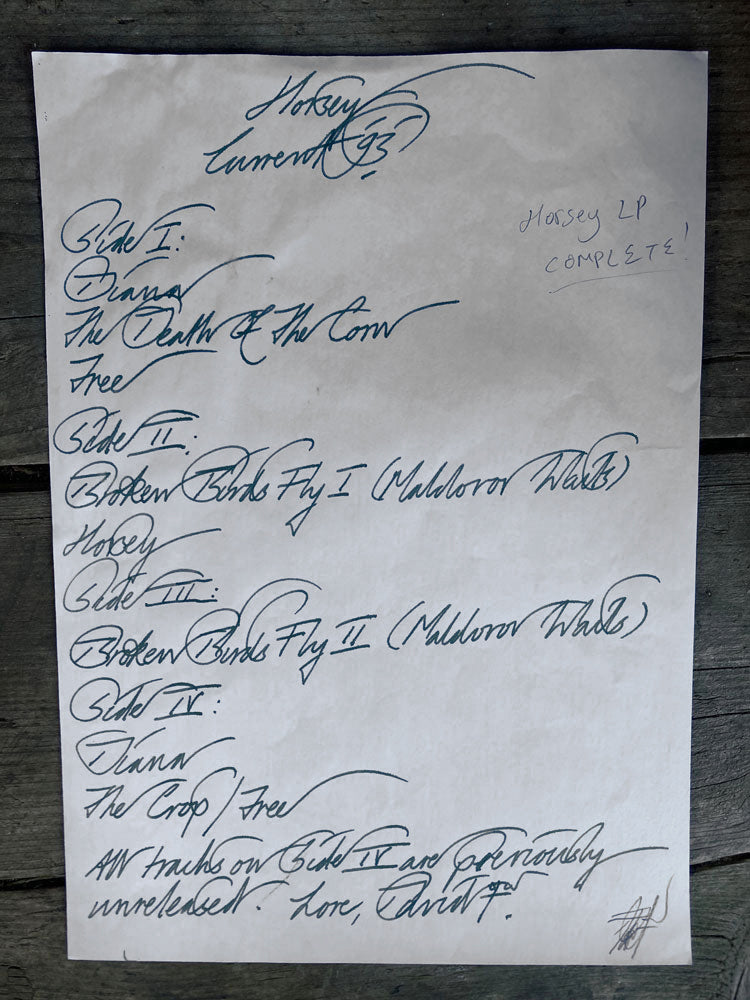 Horsey
Current 93
Horsey LP
COMPLETE!
Side I:
Diana
The Death Of The Corn
Free
Side II:
Broken Birds Fly I (Maldoror Waits)
Horsey
Side III:
Broken Birds Fly II (Maldoror Waits)
Side IV:
Diana
The Crop / Free
All tracks on Side IV are previously
unreleased. Love, David